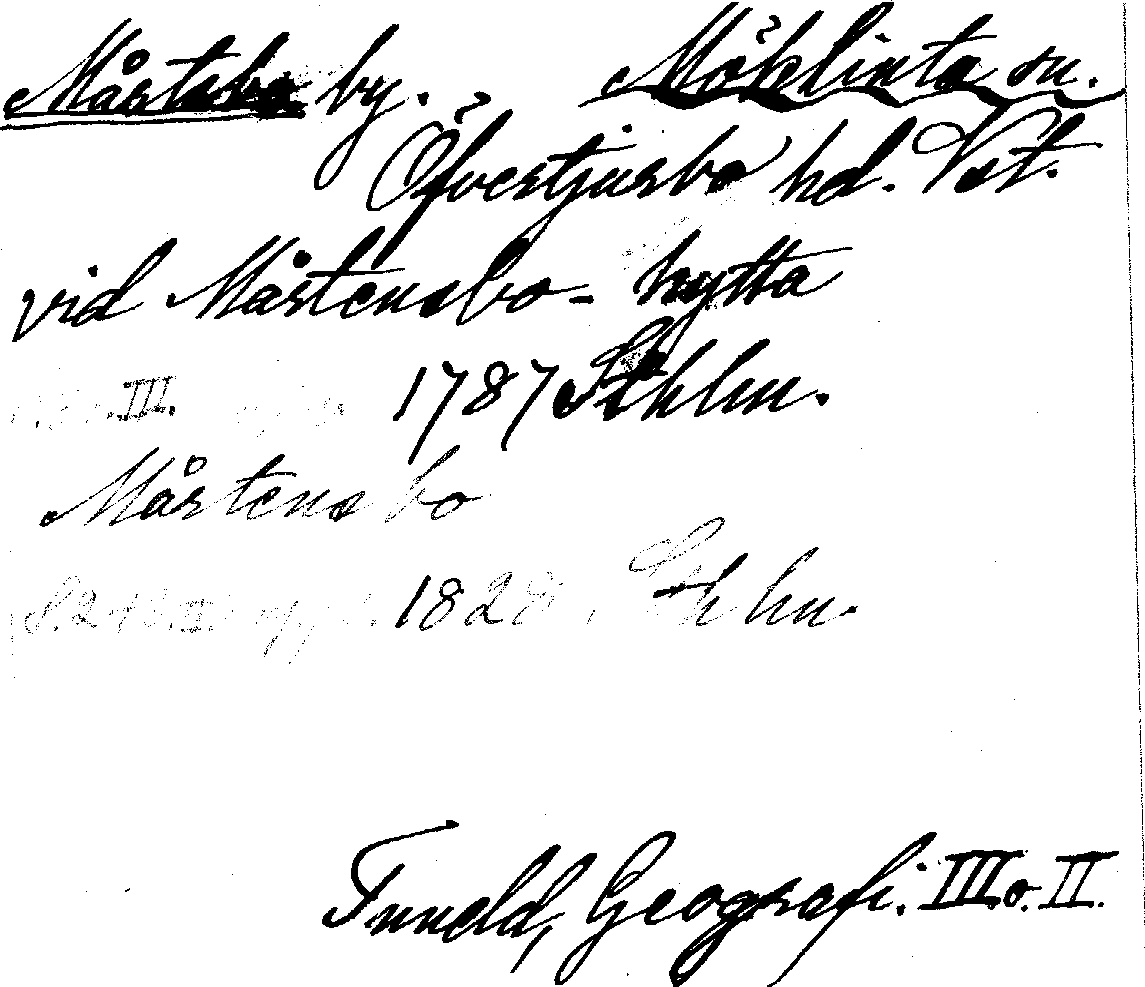 Mårtsbo by. Möklinta sn.
Öfvertjursbo hd. Vst.
vid Mårtensbo-hytta
III. 1787 Sthlm.
Mårtensbo
S. 2 1828, Sthlm.
Tuneld, Geografi. III o. II.